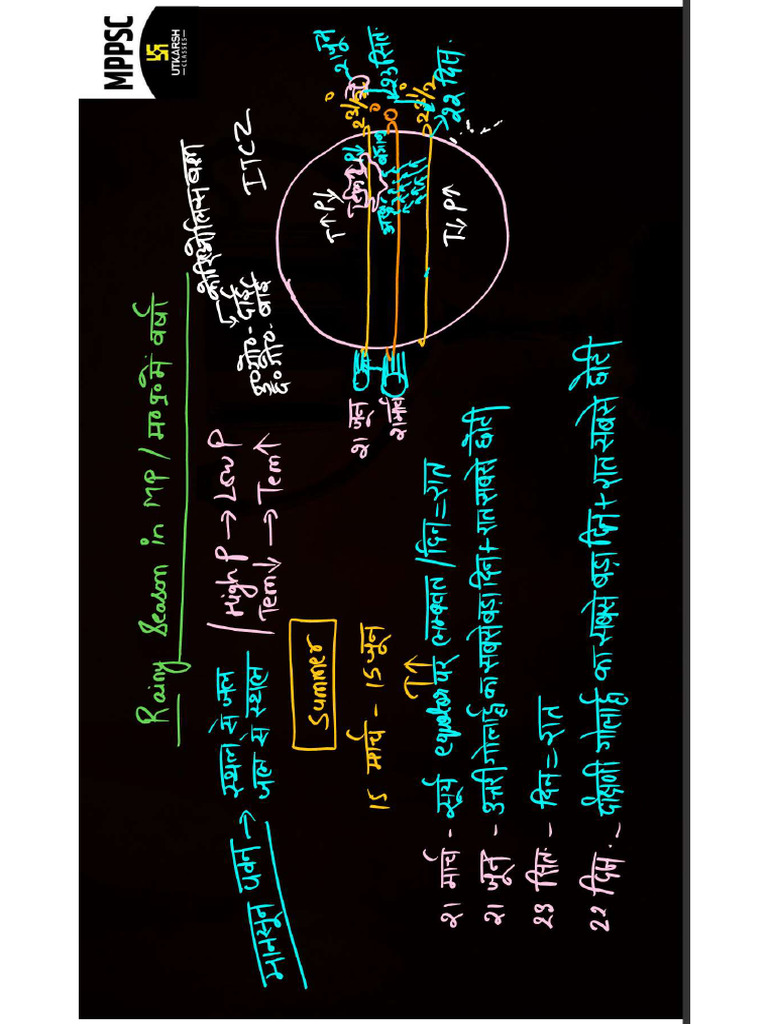 MPPSC
UTKARSH
CLASSES
Rainy Season in MP / म०प्र० में वर्षा
मानसून पवन → स्थल से जल
जल से स्थल
High P → Low P
Tem↓ → Tem↑
कोरिओलिस बल
उ०गो०- दाईं
द०गो०- बाईं
ITCZ
Summer
15 मार्च - 15 जून
T↑ P↓
T↓ P↑
21 जून
23 सित.
22 दिस.
23 1/2°
0°
23 1/2°
21 जून
21 मार्च
21 मार्च - सूर्य equator पर लम्बवत / दिन = रात
21 जून - उत्तरी गोलार्द्ध का सबसे बड़ा दिन + रात सबसे छोटी
23 सित. - दिन = रात
22 दिस. - दक्षिणी गोलार्द्ध का सबसे बड़ा दिन + रात सबसे छोटी